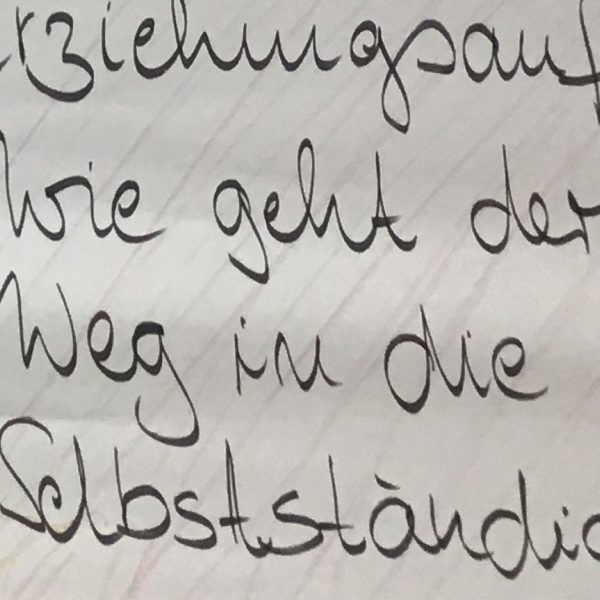 rziehungsauf
Wie geht der
Weg in die
Selbstständig